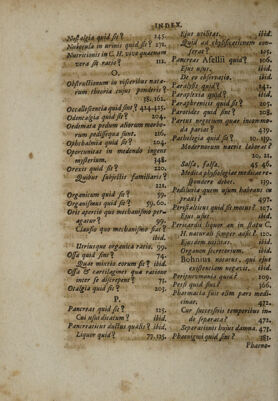 INDEX.
Nostalgia quid sit? 145.
Nubecula in urinis quid sit? 272.
Nutritionis in C. H. viva quaenam
vera sit ratio? 111.
O.
Obstructionum in visceribus natarum
theoria cujus ponderis?
38. 161.
Occallescentia quid sint? 454-552.
Odontalgia quid sit? 204.
Oedemata pedum aliorum morborum
pedissequa sunt. 216.
Ophthalmia quid sit? 104.
Oportunitas in medendo ingens
mysterium. 348.
Orexis quid sit? 220.
Quibus subjectis familiaris?
221.
Organicum quid sit? 59.
Organismus quid sit? 59. 60.
Oris apertio quo mechanismo peragatur?
99.
Clausio quo mechanismo fiat?
ibid.
Utriusque organica ratio. 99.
Ossa quid sint? 74.
Quae mixtio eorum sit? ibid.
Ossa & cartilagines qua ratione
inter se discrepent? 75.
Otalgia quid sit? 203.
P.
Pancreas quid sit? 125.
Cui usui dicatum? ibid.
Pancreaticus ductus qualis? ibid.
Liquor quid? 77. 125.
Ejus utilitas. ibid.
Quid ad chylificationem conferat?
125.
Pancreas Asellii quid? 106.
Ejus usus. ibid.
De eo observatio. ibid.
Paralysis quid? 242.
Paraplexia quid? ibid.
Paraphrenitis quid sit? 205.
Parotides quid sint? 208.
Partus negotium quae incommoda
pariat? 429.
Pathologia quid sit? 10. 20.
Modernorum naevis laborat?
20. 21.
Salsa, falsa. 45. 46.
Medica physiologiae medicae respondere
debet. 9.
Pediluvia quem usum habeant in
praxi? 497.
Peristalticus quid sit motus? 107.
Ejus usus? ibid.
Pericardii liquor an in statu C.
H. naturali semper adsit? 120.
Ejusdem utilitas. ibid.
Organon secretorium. ibid.
Bohnius notatur, qui ejus
existentiam negavit. ibid.
Peripnevmonia quid? 209.
Pessi quid sint? 366.
Pharmacia fuit olim pars medicinae.
472.
Cur successivis temporibus inde
separata? 472.
Separationis hujus damna. 473.
Phaenigmi quid sint? 381.
Phaeno-